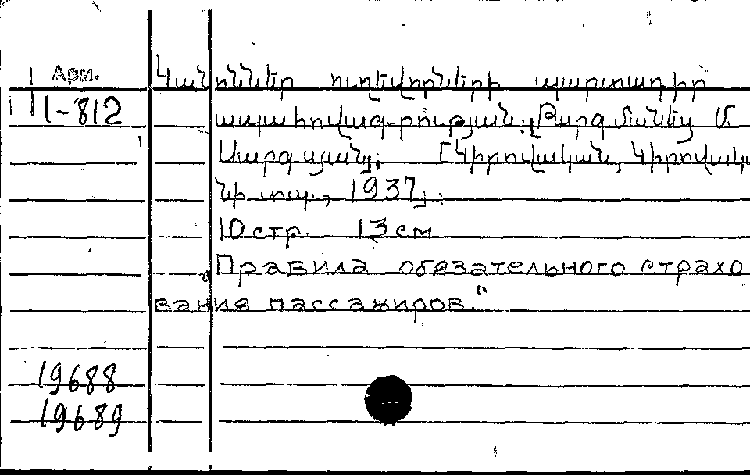 Арм.
1-812
Կանոններ ուղեվորների պարտադիր
ապահովագրության. [Թարգմանեց Մ
Սարգսյանը. [Կիրովական, Կիրովակա
նի տպ., 1937].
10 стр. 13 см
„Правила обязательного страхо
вания пассажиров."
19688
19689